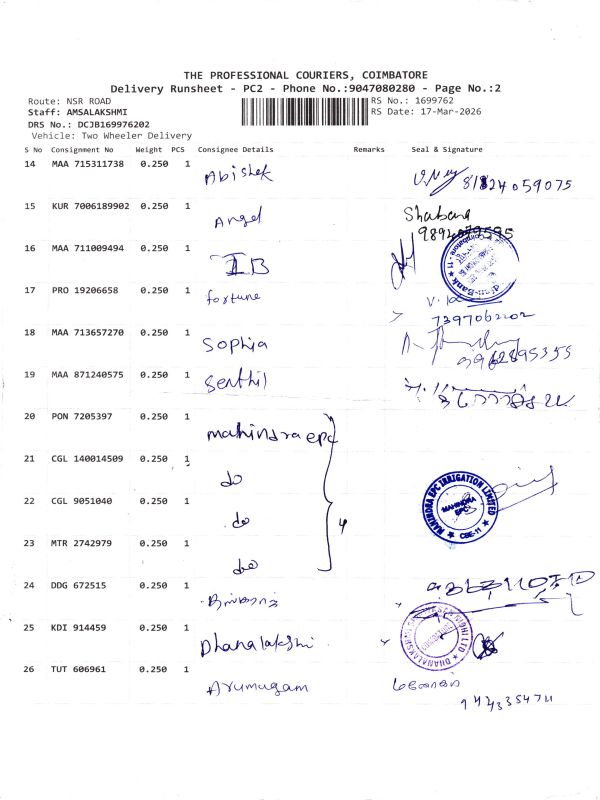 THE PROFESSIONAL COURIERS, COIMBATORE
Delivery Runsheet - PC2 - Phone No.:9047080280 - Page No.:2
Route: NSR ROAD
RS No.: 1699762
Staff: AMSALAKSHMI
RS Date: 17-Mar-2026
DRS No.: DCJB169976202
Vehicle: Two Wheeler Delivery
S No Consignment No Weight PCS Consignee Details Remarks Seal & Signature
14 MAA 715311738 0.250 1 Abishek
15 KUR 7006189902 0.250 1 Angel Shabana
16 MAA 711009494 0.250 1 IB
17 PRO 19206658 0.250 1 fortune
7397062202
18 MAA 713657270 0.250 1 Sophia
9962895355
19 MAA 871240575 0.250 1 Senthil
20 PON 7205397 0.250 1 mahindra epc
21 CGL 140014509 0.250 1 do
22 CGL 9051040 0.250 1 do 4
MAHINDRA EPC IRRIGATION LIMITED
MAHINDRA EPC
CBE-11
23 MTR 2742979 0.250 1 do
24 DDG 672515 0.250 1
25 KDI 914459 0.250 1 Dhanalakshmi
26 TUT 606961 0.250 1 Arumugam